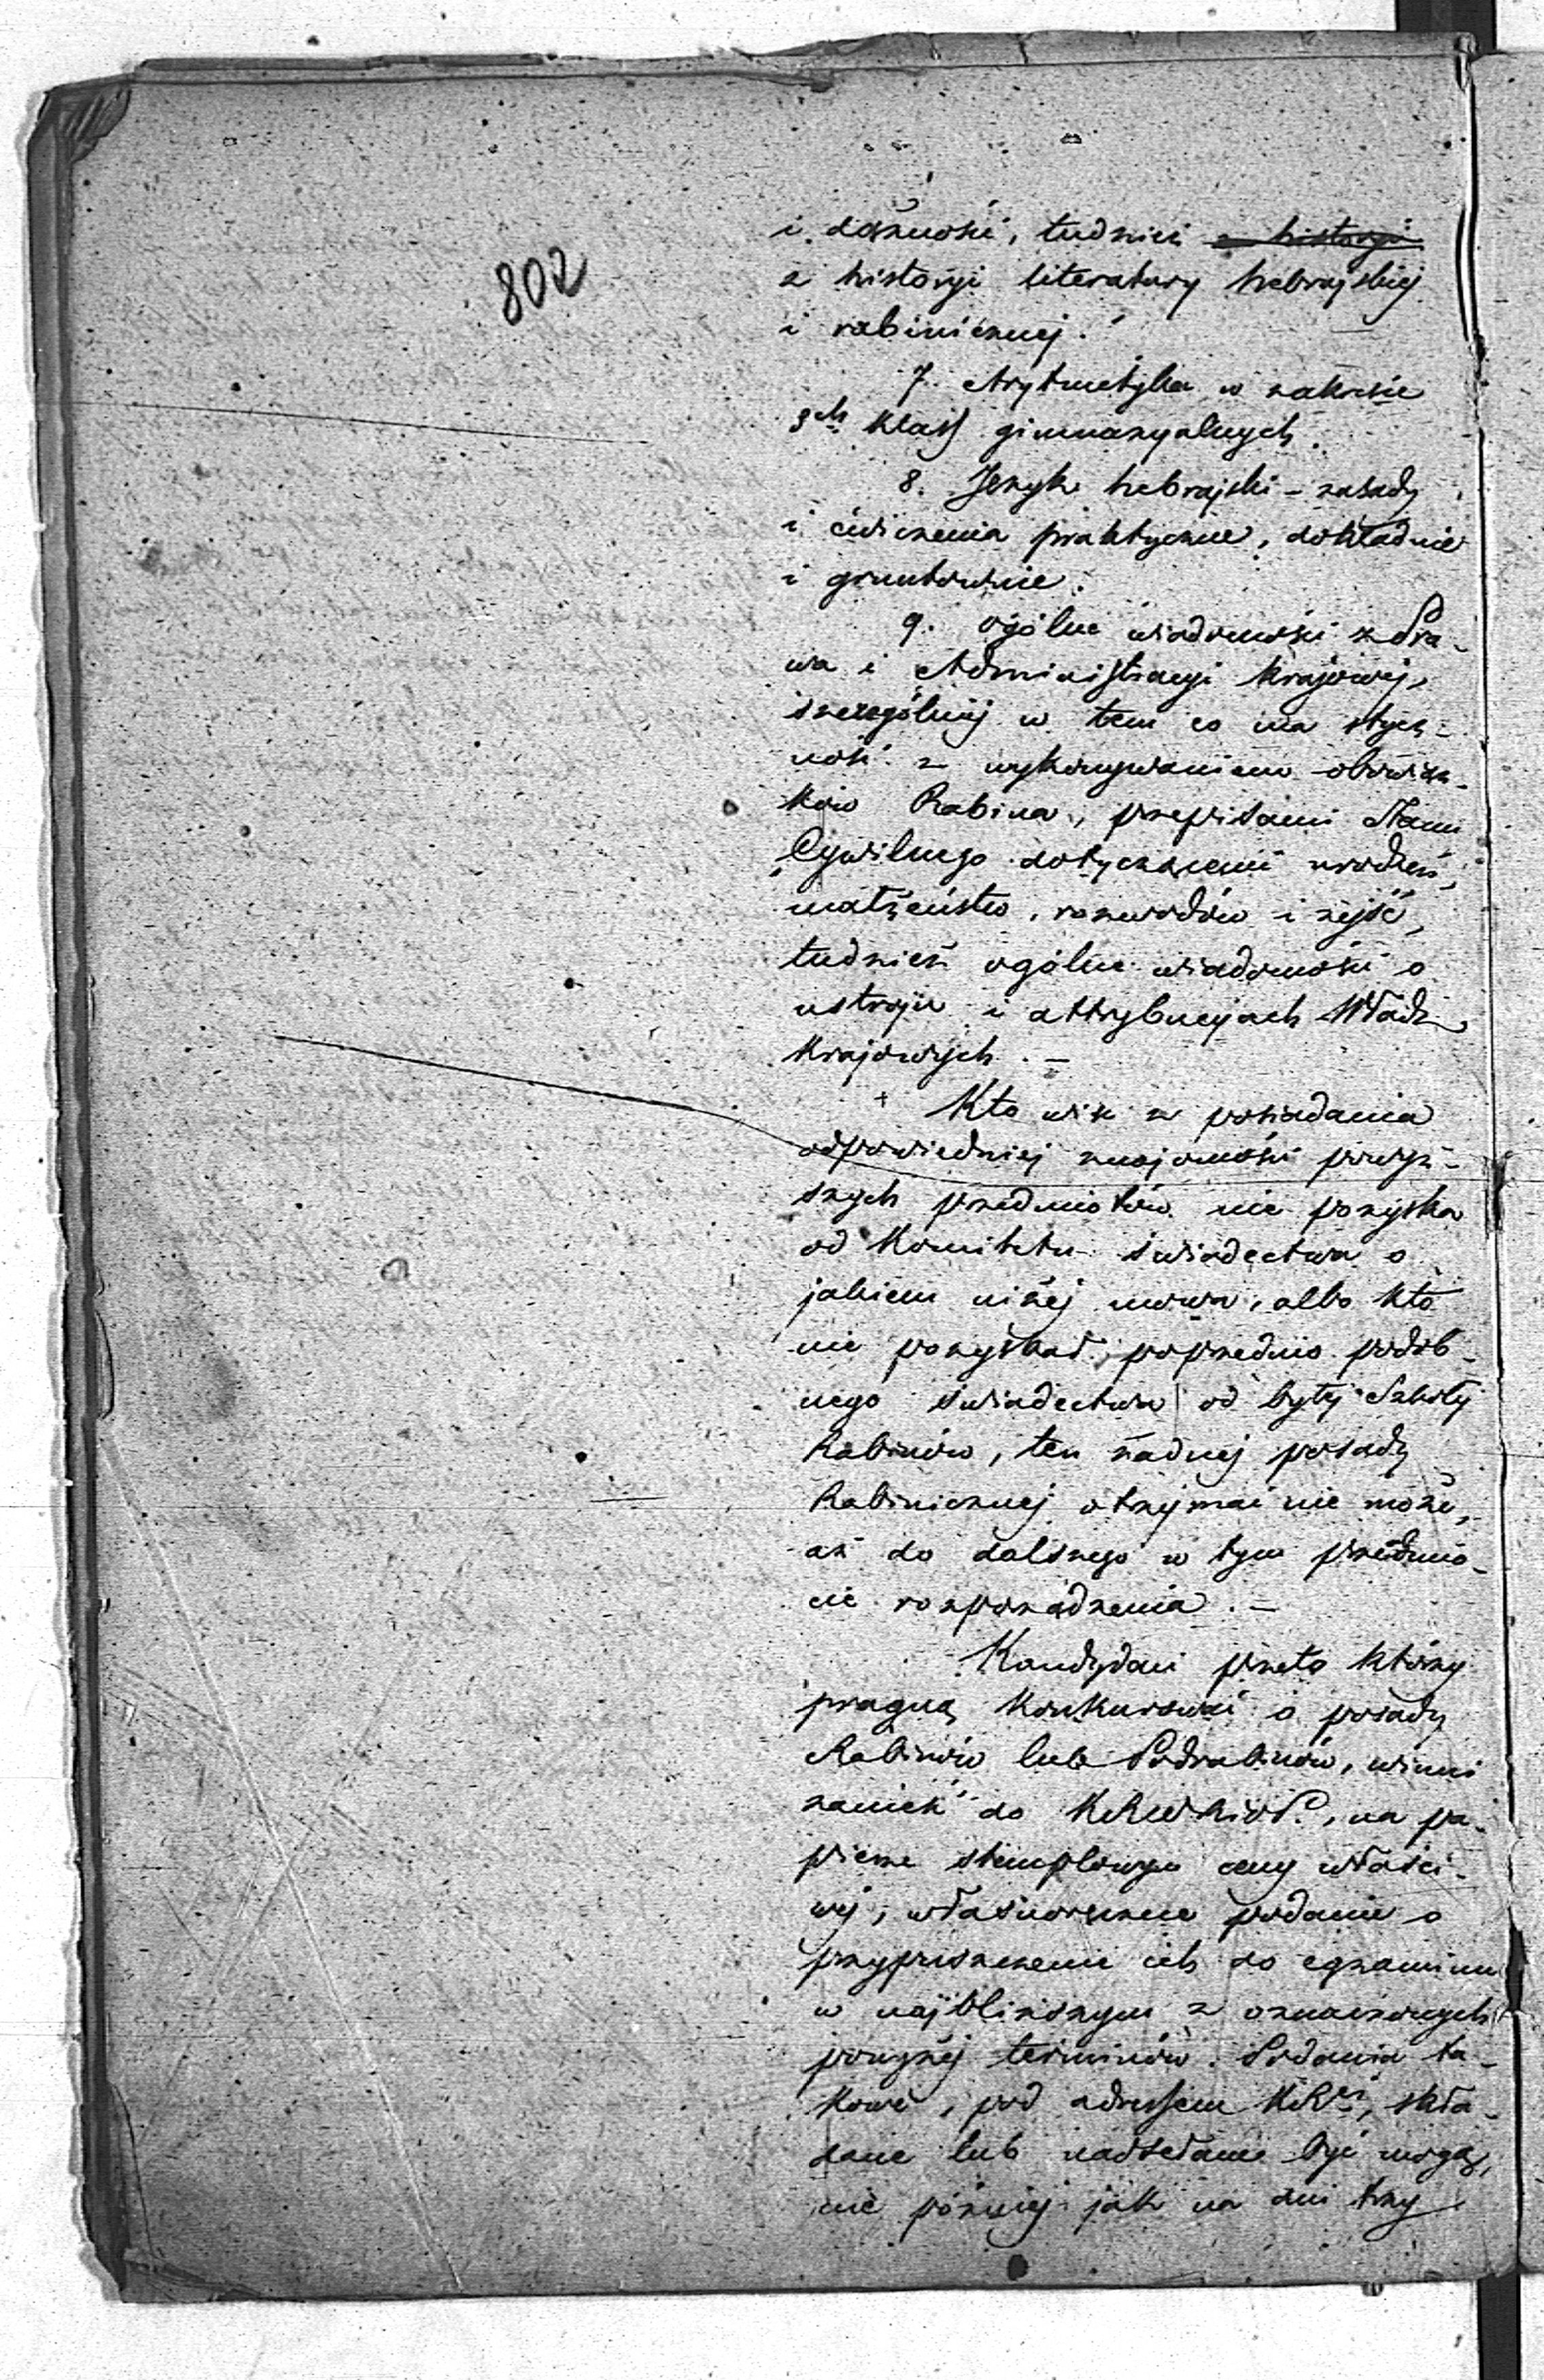 802
i dążności, tudzież z historyi
z historyi literatury hebrajskiej
i rabinicznej.
7. Arytmetyka w zakresie
3ch klass gimnazyalnych.
8. Język hebrajski – zasady
i ćwiczenia praktyczne, dokładnie
i gruntownie.
9. ogólne wiadomości z Pra-
wa i Administracyi Krajowej,
szczególniej w tem co ma stycz-
ność z wykonywaniem obowiąz-
ków Rabina, przepisami Stanu
Cywilnego dotyczącemi urodzeń,
małżeństw, rozwodów i zejść,
tudzież ogólne wiadomości o
ustroju i attrybucyjach Władz
Krajowych. –
Kto więc z posiadania
odpowiedniej znajomości powyż-
szych przedmiotów nie pozyska
od Komitetu świadectwa o
jakiem niżej mowa, albo kto
nie pozyskał poprzednio podob-
nego świadectwa od byłej Szkoły
Rabinów, ten żadnej posady
Rabinicznej otrzymać nie może,
aż do dalszego w tym przedmio-
cie rozporządzenia. –
Kandydaci przeto którzy
pragną konkurować o posady
Rabinów lub Podrabinów, winni
zanieść do KRWRiOP., na pa-
pierze stemplowym ceny właści-
wej, własnoręczne podanie o
przypuszczenie ich do egzaminu
w najbliższym z oznaczonych
powyżej terminów. Podania ta-
kowe, pod adressem KRej, skła-
dane lub nadsełane być mogą,
nie później jak na dni trzy